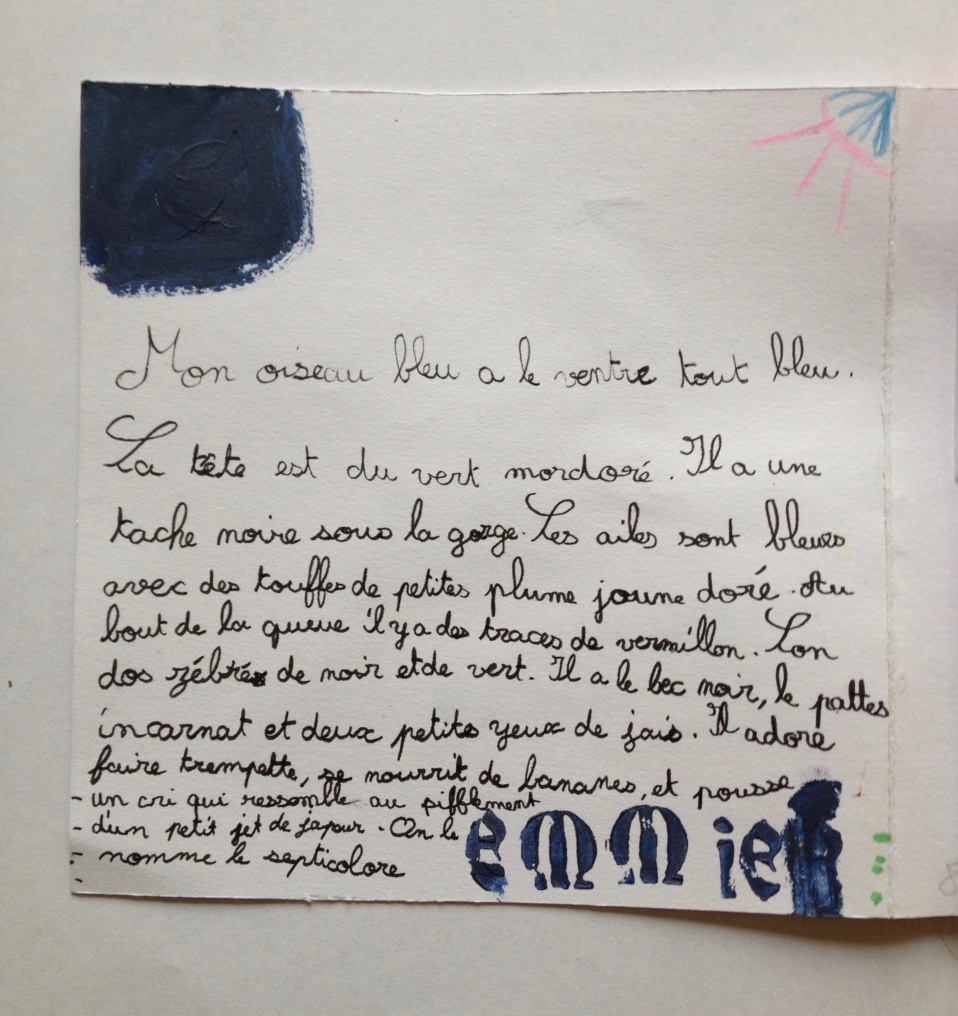 Mon oiseau bleu a le ventre tout bleu.
La tête est du vert mordoré. Il a une
tache noire sous la gorge. Les ailes sont bleues
avec des touffes de petites plume jaune doré. Au
bout de la queue il y a des traces de vermillon. Son
dos zébré de noir et de vert. Il a le bec noir, le pattes
incarnat et deux petits yeux de jais. Il adore
faire trempette, se nourrit de bananes, et pousse
- un cri qui ressemble au sifflement
- d'un petit jet de japour. On le
- nomme le septicolore
emmie